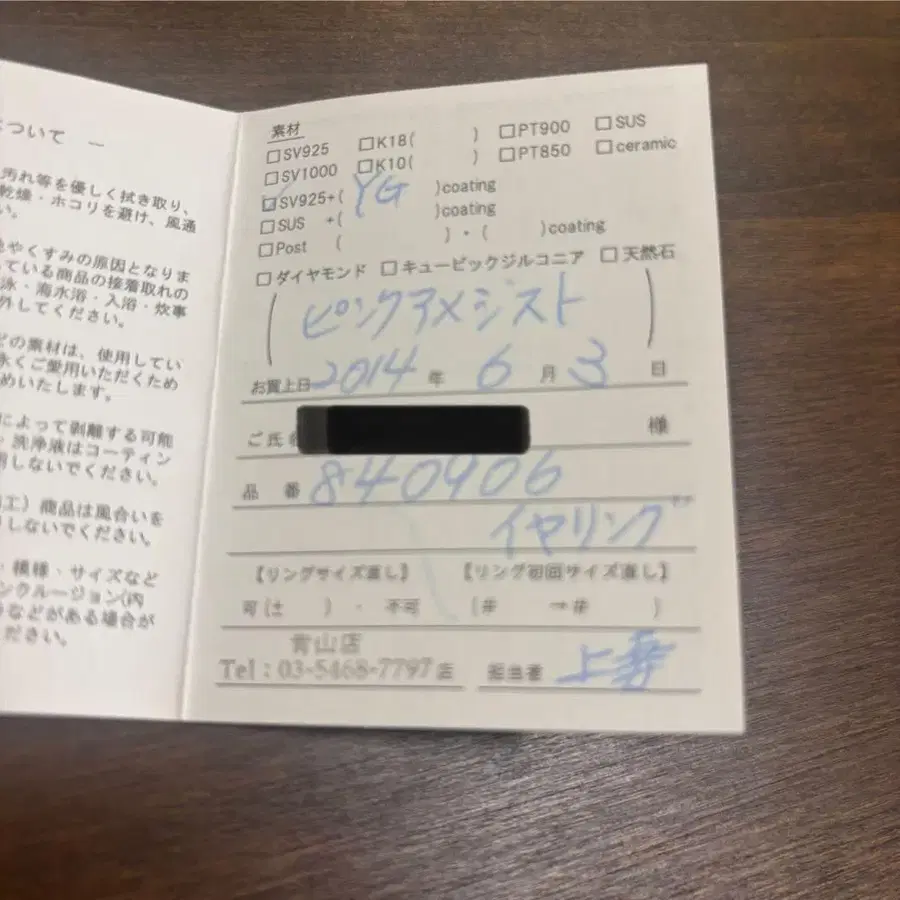 ついて ―
汚れ等を優しく拭き取り、
乾燥・ホコリを避け、風通
い。
やくすみの原因となりま
ている商品の接着取れの
泳・海水浴・入浴・炊事
外してください。
どの素材は、使用してい
永くご愛用いただくため
めいたします。
によって剥離する可能
・洗浄液はコーティン
用しないでください。
工）商品は風合いを
しないでください。
・模様・サイズなど
ンクルージョン(内
などがある場合が
ださい。
素材
□SV925 □K18( ) □PT900 □SUS
□SV1000 □K10( ) □PT850 □ceramic
☑SV925+( YG )coating
□SUS +( )coating
□Post ( )・( )coating
□ダイヤモンド □キュービックジルコニア □天然石
(ピンクアメジスト)
お買上日 2014 年 6 月 3 日
ご氏名 様
品 番 840906
イヤリング
【リングサイズ直し】 【リング初回サイズ直し】
可(± )・不可 (# →# )
青山店
Tel：03-5468-7797 店 担当者